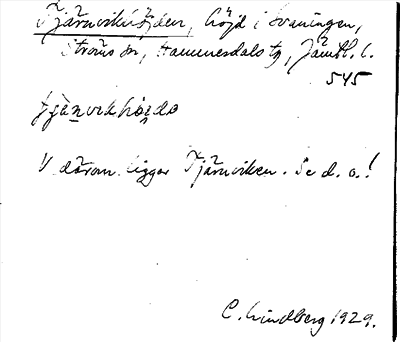 Tjärnvikshöjden, höjd i Svaningen,
Ströms sn, Hammerdals tg, Jämtl. l.
545
V därom ligger Tjärnviken. Se d. o.!
C. Lindberg 1929.